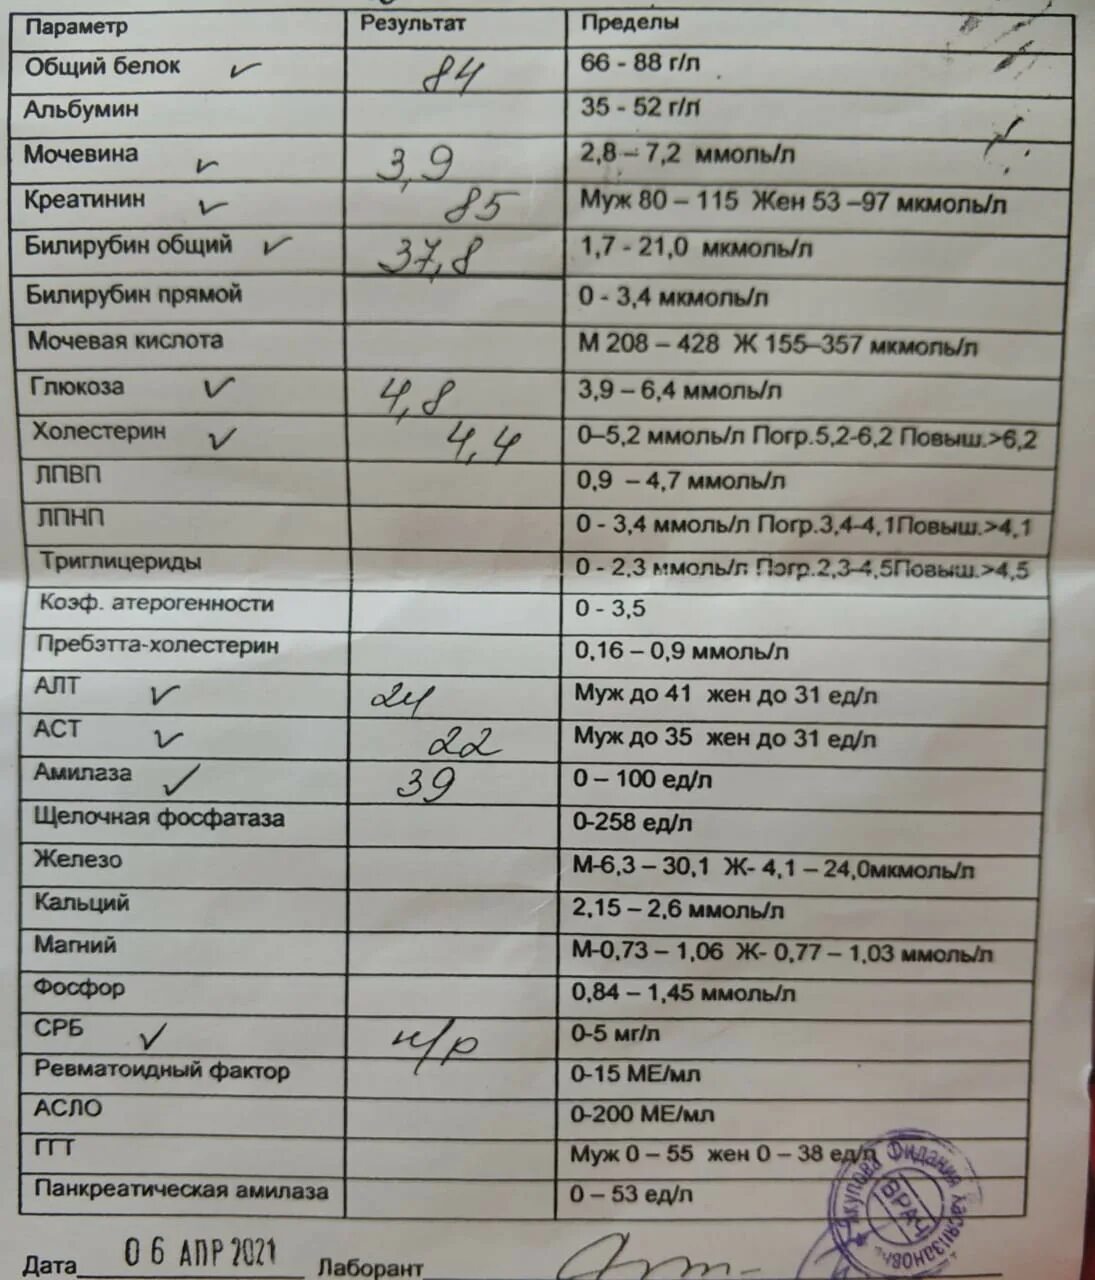 Параметр Результат Пределы
Общий белок 84 66 - 88 г/л
Альбумин 35 - 52 г/л
Мочевина 3,9 2,8 – 7,2 ммоль/л
Креатинин 85 Муж 80 – 115 Жен 53 –97 мкмоль/л
Билирубин общий 37,8 1,7 - 21,0 мкмоль/л
Билирубин прямой 0 - 3,4 мкмоль/л
Мочевая кислота М 208 – 428 Ж 155–357 мкмоль/л
Глюкоза 4,8 3,9 – 6,4 ммоль/л
Холестерин 4,4 0–5,2 ммоль/л Погр.5,2-6,2 Повыш.>6,2
ЛПВП 0,9 – 4,7 ммоль/л
ЛПНП 0 - 3,4 ммоль/л Погр.3,4-4,1Повыш.>4,1
Триглицериды 0 - 2,3 ммоль/л Погр.2,3-4,5Повыш.>4,5
Коэф. атерогенности 0 - 3,5
Пребэтта-холестерин 0,16 – 0,9 ммоль/л
АЛТ 24 Муж до 41 жен до 31 ед/л
АСТ 22 Муж до 35 жен до 31 ед/л
Амилаза 39 0 – 100 ед/л
Щелочная фосфатаза 0-258 ед/л
Железо М-6,3 – 30,1 Ж- 4,1 – 24,0мкмоль/л
Кальций 2,15 – 2,6 ммоль/л
Магний М-0,73 – 1,06 Ж- 0,77 – 1,03 ммоль/л
Фосфор 0,84 – 1,45 ммоль/л
СРБ н/р 0-5 мг/л
Ревматоидный фактор 0-15 МЕ/мл
АСЛО 0-200 МЕ/мл
ГГТ Муж 0 – 55 жен 0 – 38 ед/л
Панкреатическая амилаза 0 – 53 ед/л
Фидания
ВРАЧ
Дата 06 АПР 2021 Лаборант